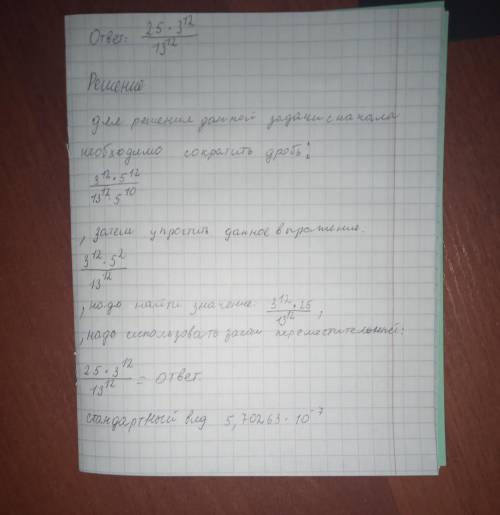 Ответ: 25 · 3¹² / 13¹²
Решение
для решения данной задачи сначала
необходимо сократить дробь:
3¹² · 5¹² / 13¹² · 5¹⁰
, затем упростить данное выражение.
3¹² · 5² / 13¹²
, надо найти значение 3¹² · 25 / 13¹² ,
, надо использовать закон переместительный:
25 · 3¹² / 13¹² = ответ.
стандартный вид 5,70263 · 10⁻⁷